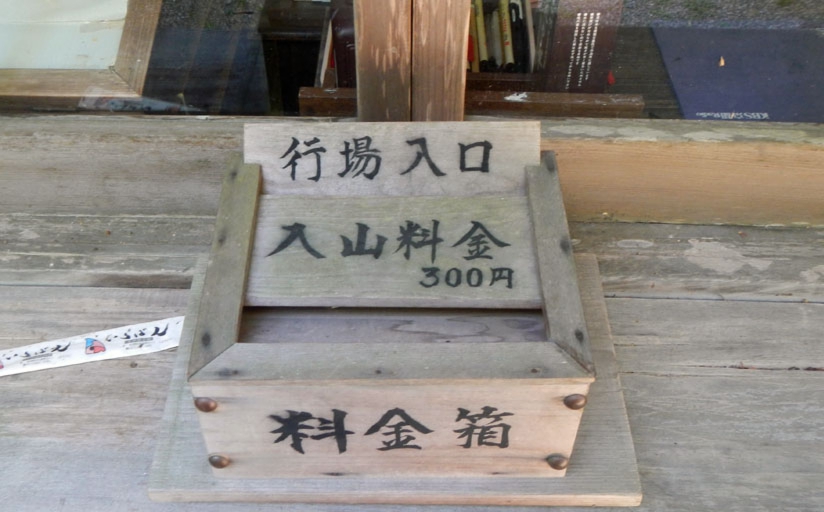 行場入口
入山料金
300円
料金箱